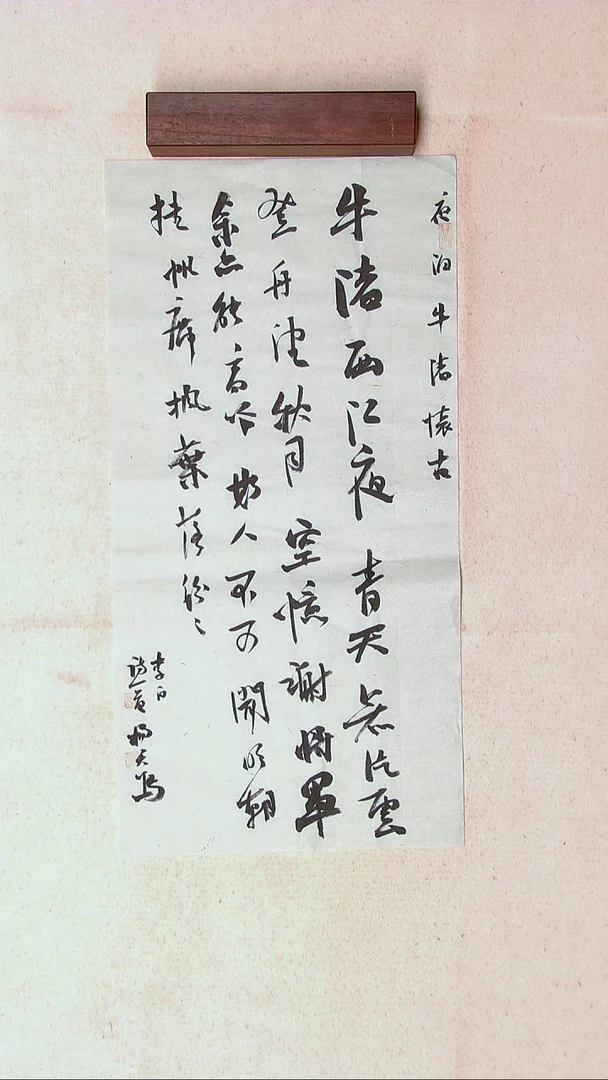 夜泊牛渚懷古
牛渚西江夜青天無片雲
登舟望秋月空憶謝將軍
余亦能高吟斯人不可聞明朝
挂帆席楓葉落紛々
李白